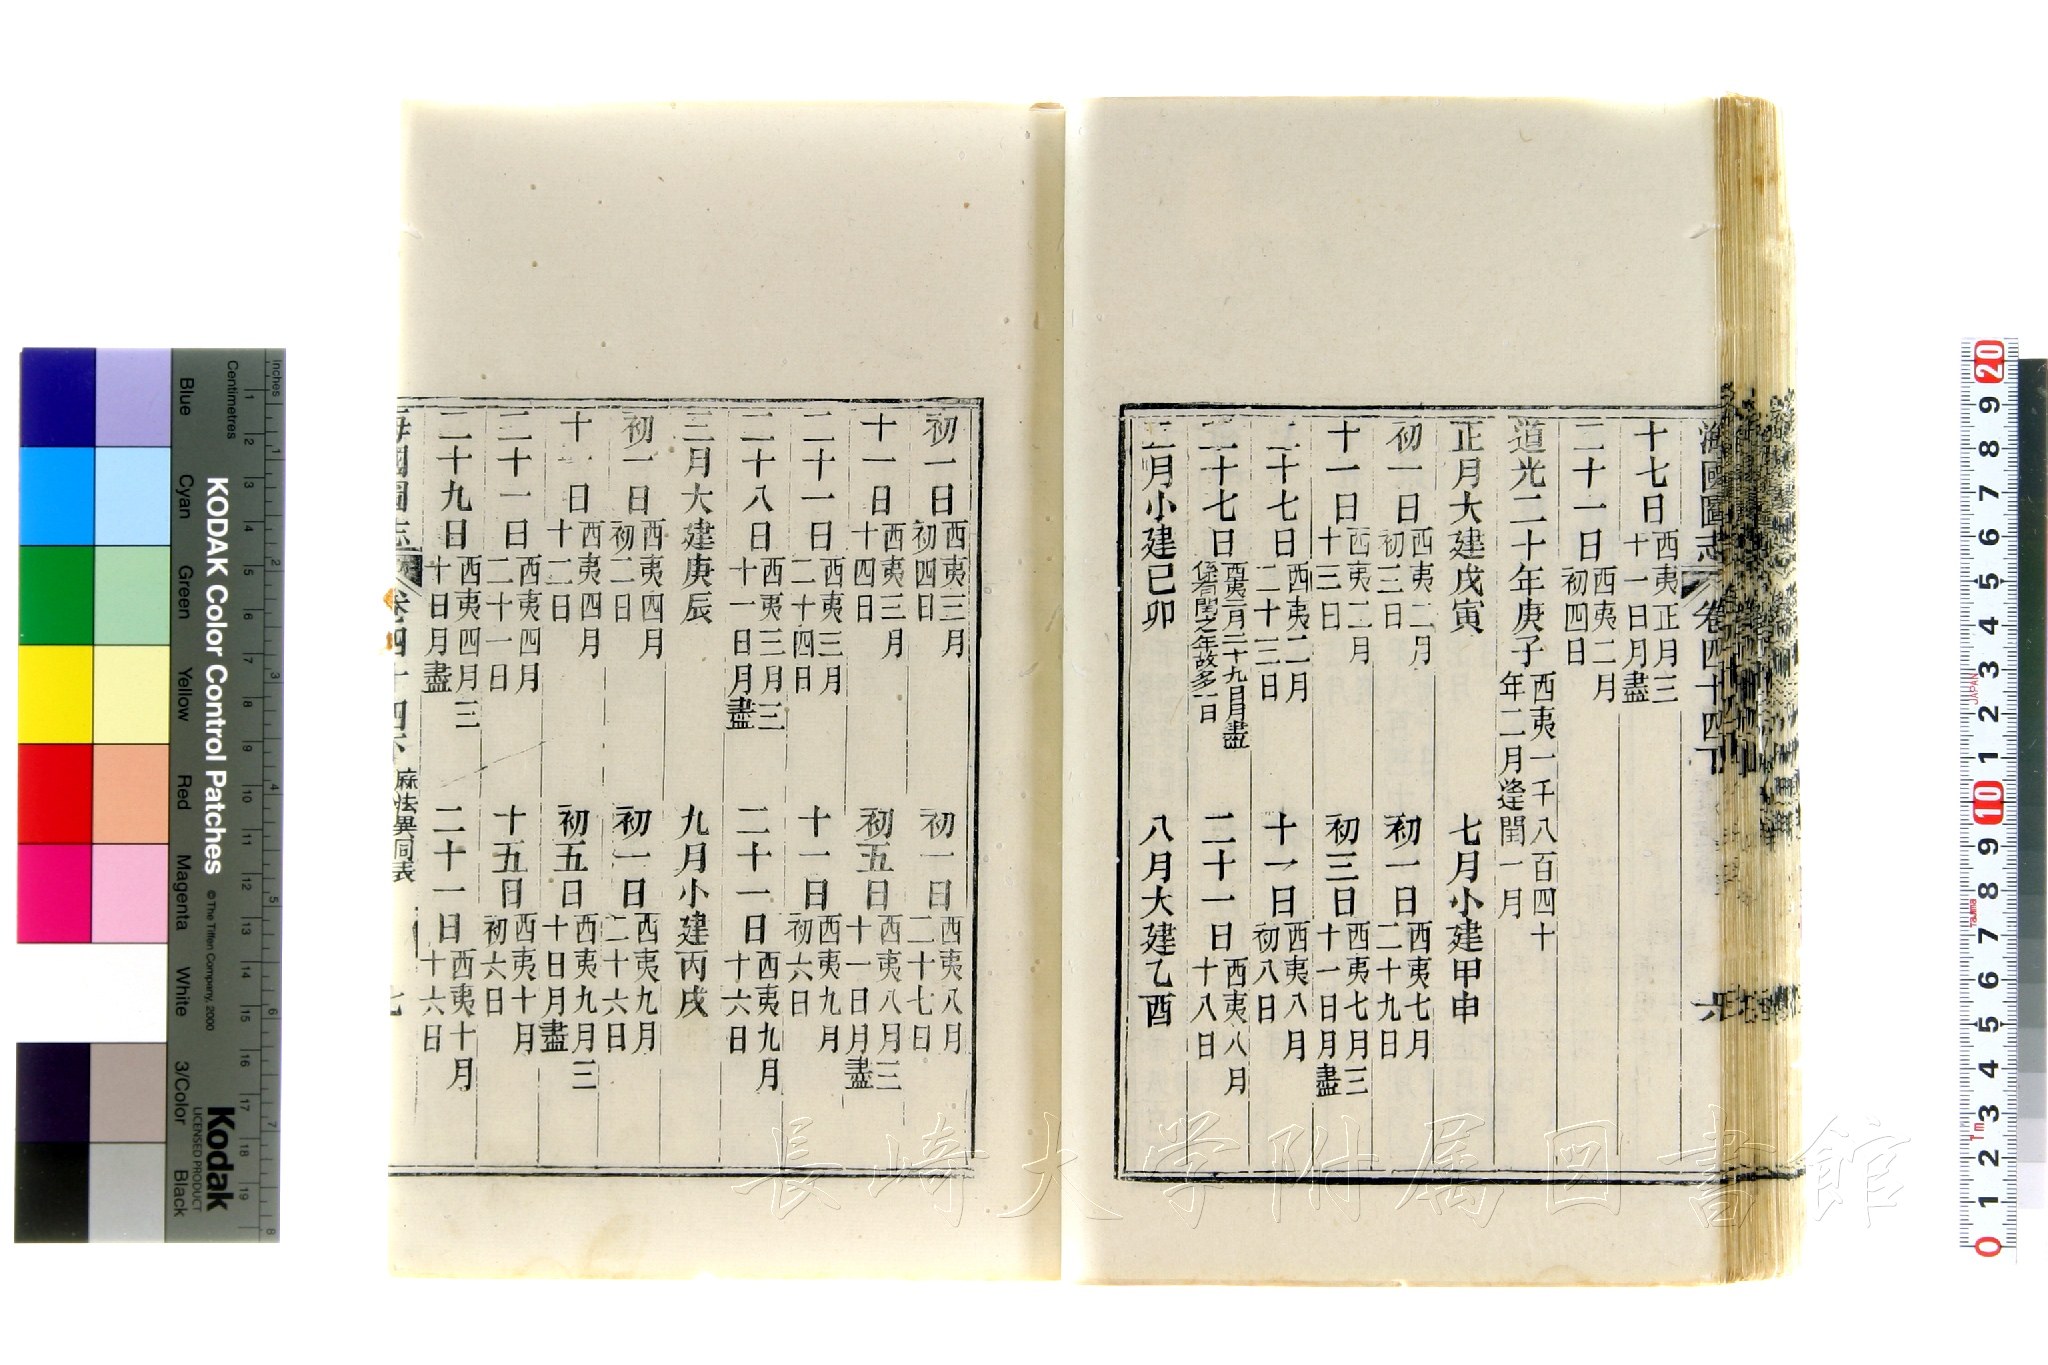 海國圖志 卷四十四下 六
十七日西夷正月三十一日月盡
二十一日西夷二月初四日
道光二十年庚子西夷一千八百四十年二月逢閏一月
正月大建戊寅 七月小建甲申
初一日西夷二月初三日 初一日西夷七月二十九日
十一日西夷二月十三日 初三日西夷七月三十一日月盡
二十七日西夷二月二十三日 十一日西夷八月初八日
二十七日西夷二月二十九日月盡係閏之年故多一日 二十一日西夷八月十八日
二月小建已卯 八月大建乙酉
初一日西夷三月初四日 初一日西夷八月二十七日
十一日西夷三月十四日 初五日西夷八月三十一日月盡
二十一日西夷三月二十四日 十一日西夷九月初六日
二十八日西夷三月三十一日月盡 二十一日西夷九月十六日
三月大建庚辰 九月小建丙戌
初一日西夷四月初二日 初一日西夷九月二十六日
十一日西夷四月十二日 初五日西夷九月三十日月盡
二十一日西夷四月二十一日 十五日西夷十月初六日
二十九日西夷四月三十日月盡 二十一日西夷十月十六日
海國圖志 卷四十四下 厤法異同表 七
長崎大学附属図書館
KODAK Color Control Patches
© The Tiffen Company, 2000
Kodak
LICENSED PRODUCT
Inches
Centimetres
Blue
Cyan
Green
Yellow
Red
Magenta
White
3/Color
Black
1 2 3 4 5 6 7 8
1 2 3 4 5 6 7 8 9 10 11 12 13 14 15 16 17 18 19
20 9 8 7 6 5 4 3 2 1 10 9 8 7 6 5 4 3 2 1 0
JAPAN